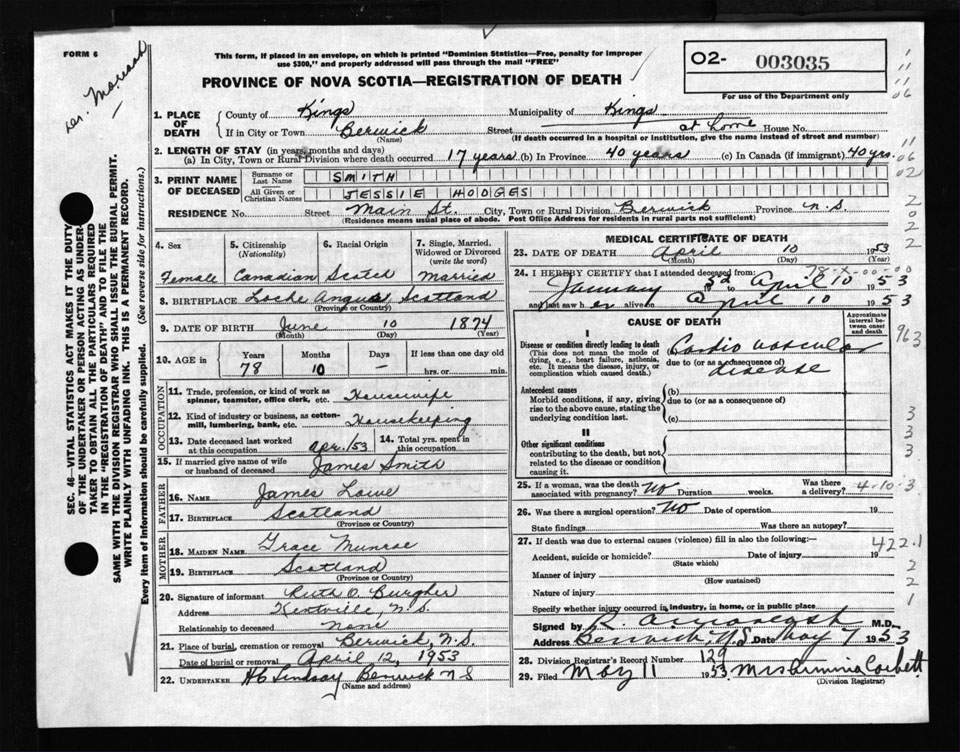 FORM 6
This form, if placed in an envelope, on which is printed "Dominion Statistics—Free, penalty for improper
use $300," and properly addressed will pass through the mail "FREE"
PROVINCE OF NOVA SCOTIA—REGISTRATION OF DEATH
O2- 003035
For use of the Department only
SEC. 46—VITAL STATISTICS ACT MAKES IT THE DUTY
OF THE UNDERTAKER OR PERSON ACTING AS UNDER-
TAKER TO OBTAIN ALL THE PARTICULARS REQUIRED
IN THE "REGISTRATION OF DEATH" AND TO FILE THE
SAME WITH THE DIVISION REGISTRAR WHO SHALL ISSUE THE BURIAL PERMIT.
WRITE PLAINLY WITH UNFADING INK. THIS IS A PERMANENT RECORD.
Every item of information should be carefully supplied. (See reverse side for instructions.)
1. PLACE OF DEATH
County of Kings Municipality of Kings
If in City or Town Berwick Street at home House No.
(Name) (If death occurred in a hospital or institution, give the name instead of street and number)
2. LENGTH OF STAY (in years, months and days)
(a) In City, Town or Rural Division where death occurred 17 years (b) In Province 40 years (c) In Canada (if immigrant) 40 yrs.
3. PRINT NAME OF DECEASED
Surname or Last Name SMITH
All Given or Christian Names JESSIE HODGES
RESIDENCE No. Street Main St. City, Town or Rural Division Berwick Province N.S.
(Residence means usual place of abode. Post Office Address for residents in rural parts not sufficient)
4. Sex Female
5. Citizenship (Nationality) Canadian
6. Racial Origin Scotch
7. Single, Married, Widowed or Divorced (write the word) Married
8. BIRTHPLACE Loche Angus Scotland
(Province or Country)
9. DATE OF BIRTH June 10 1874
(Month) (Day) (Year)
10. AGE in Years 78 Months 10 Days — If less than one day old hrs. or min.
OCCUPATION
11. Trade, profession, or kind of work as spinner, teamster, office clerk, etc. Housewife
12. Kind of industry or business, as cotton-mill, lumbering, bank, etc. Housekeeping
13. Date deceased last worked at this occupation Apr. 1/53
14. Total yrs. spent in this occupation
15. If married give name of wife or husband of deceased James Smith
FATHER
16. NAME James Lowe
17. BIRTHPLACE Scotland
(Province or Country)
MOTHER
18. MAIDEN NAME Grace Munroe
19. BIRTHPLACE Scotland
(Province or Country)
20. Signature of informant Ruth O. Burgher
Address Kentville, N.S.
Relationship to deceased None
21. Place of burial, cremation or removal Berwick, N.S.
Date of burial or removal April 12, 1953
22. UNDERTAKER H C Lindsay Berwick NS
(Name and address)
MEDICAL CERTIFICATE OF DEATH
23. DATE OF DEATH April 10 1953
(Month) (Day) (Year)
24. I HEREBY CERTIFY that I attended deceased from:
January 52 to April 10 1953
and last saw her alive on April 10 1953
CAUSE OF DEATH
Approximate interval between onset and death
I
Disease or condition directly leading to death
(This does not mean the mode of dying, e.g., heart failure, asthenia, etc. It means the disease, injury, or complication which caused death.)
Cardio vascular
due to (or as a consequence of)
disease
Antecedent causes
Morbid conditions, if any, giving rise to the above cause, stating the underlying condition last.
(b)
due to (or as a consequence of)
(c)
II
Other significant conditions
contributing to the death, but not related to the disease or condition causing it.
25. If a woman, was the death associated with pregnancy? No Duration weeks. Was there a delivery?
4-10-3
26. Was there a surgical operation? No Date of operation 19
State findings Was there an autopsy?
27. If death was due to external causes (violence) fill in also the following:—
422.1
Accident, suicide or homicide? Date of injury 19
(State which)
Manner of injury
(How sustained)
Nature of injury
Specify whether injury occurred in industry, in home, or in public place
Signed by M.D.
Address Berwick, N.S Date May 7 1953
28. Division Registrar's Record Number 129
29. Filed May 11 1953 Corbett
(Division Registrar)